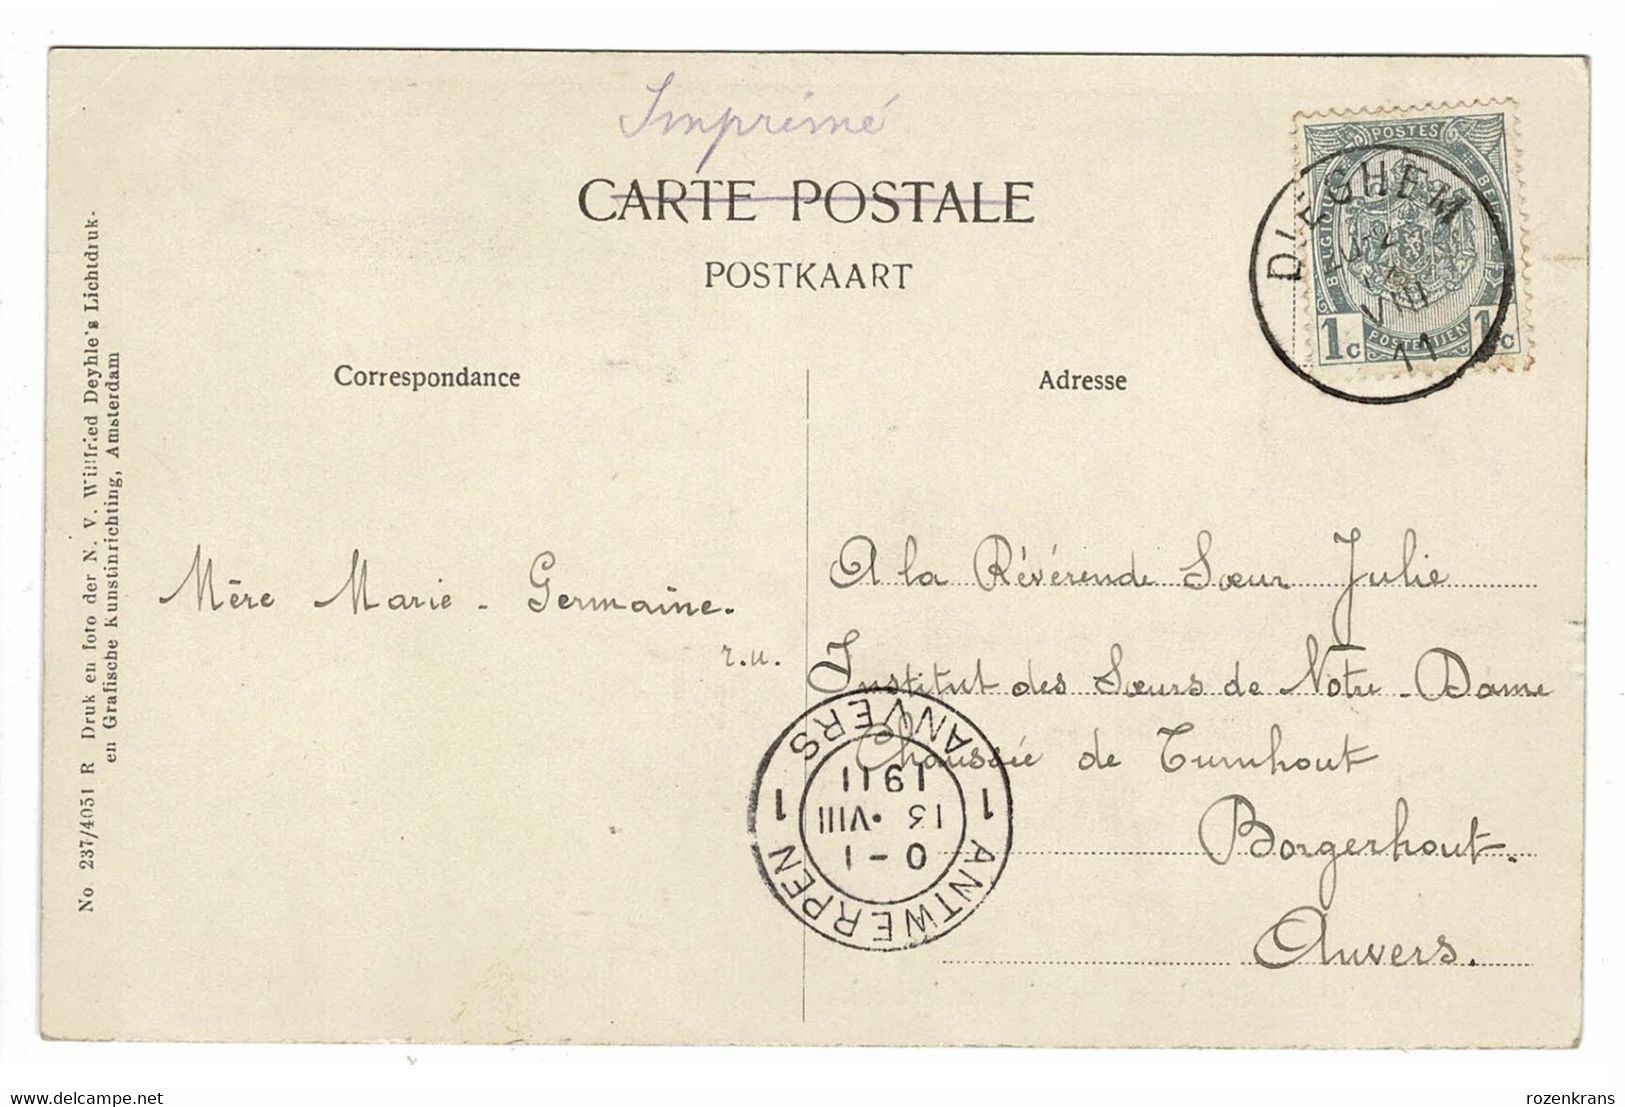 Imprimé
CARTE POSTALE
POSTKAART
Correspondance
Adresse
POSTES
BELGIQUE
POSTERIJEN
1c 1c
DIEGHEM
12
VIII
11
Mère Marie-Germaine.
r.u.
A la Révérende Sœur Julie
Institut des Sœurs de Notre-Dame
Chaussée de Turnhout
Borgerhout.
Anvers.
1 ANTWERPEN 1 ANVERS
0-1
13.VIII
1911
No 237/4051 R Druk en foto der N. V. Willfried Deyhle's Lichtdruk-
en Grafische Kunstinrichting, Amsterdam
www.delcampe.net
rozenkrans